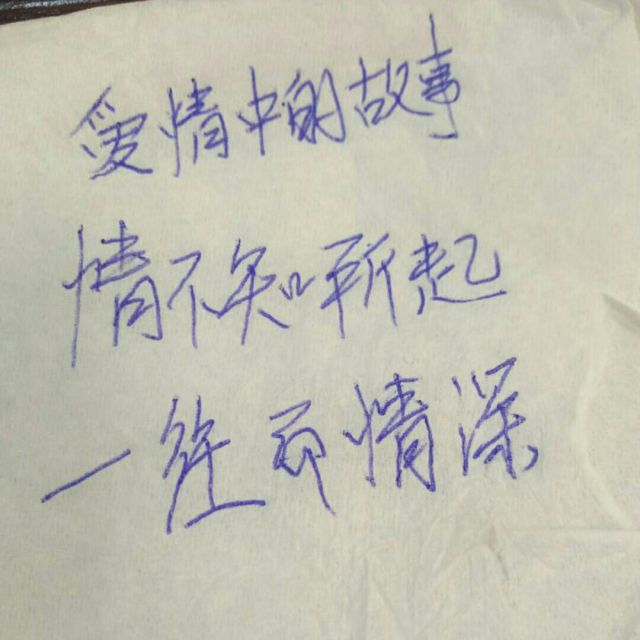 爱情中的故事
情不知所起
一往而情深